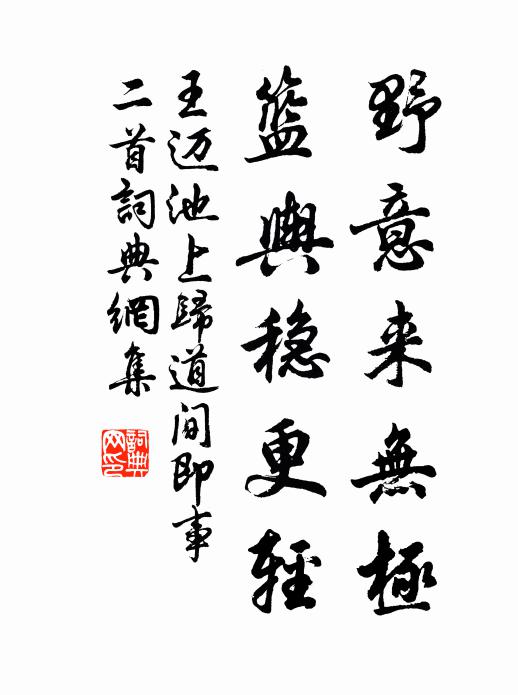 野意来無極
籃輿穏更輕
王迈池上歸道间即事
二首詞典網集
詞典
网印